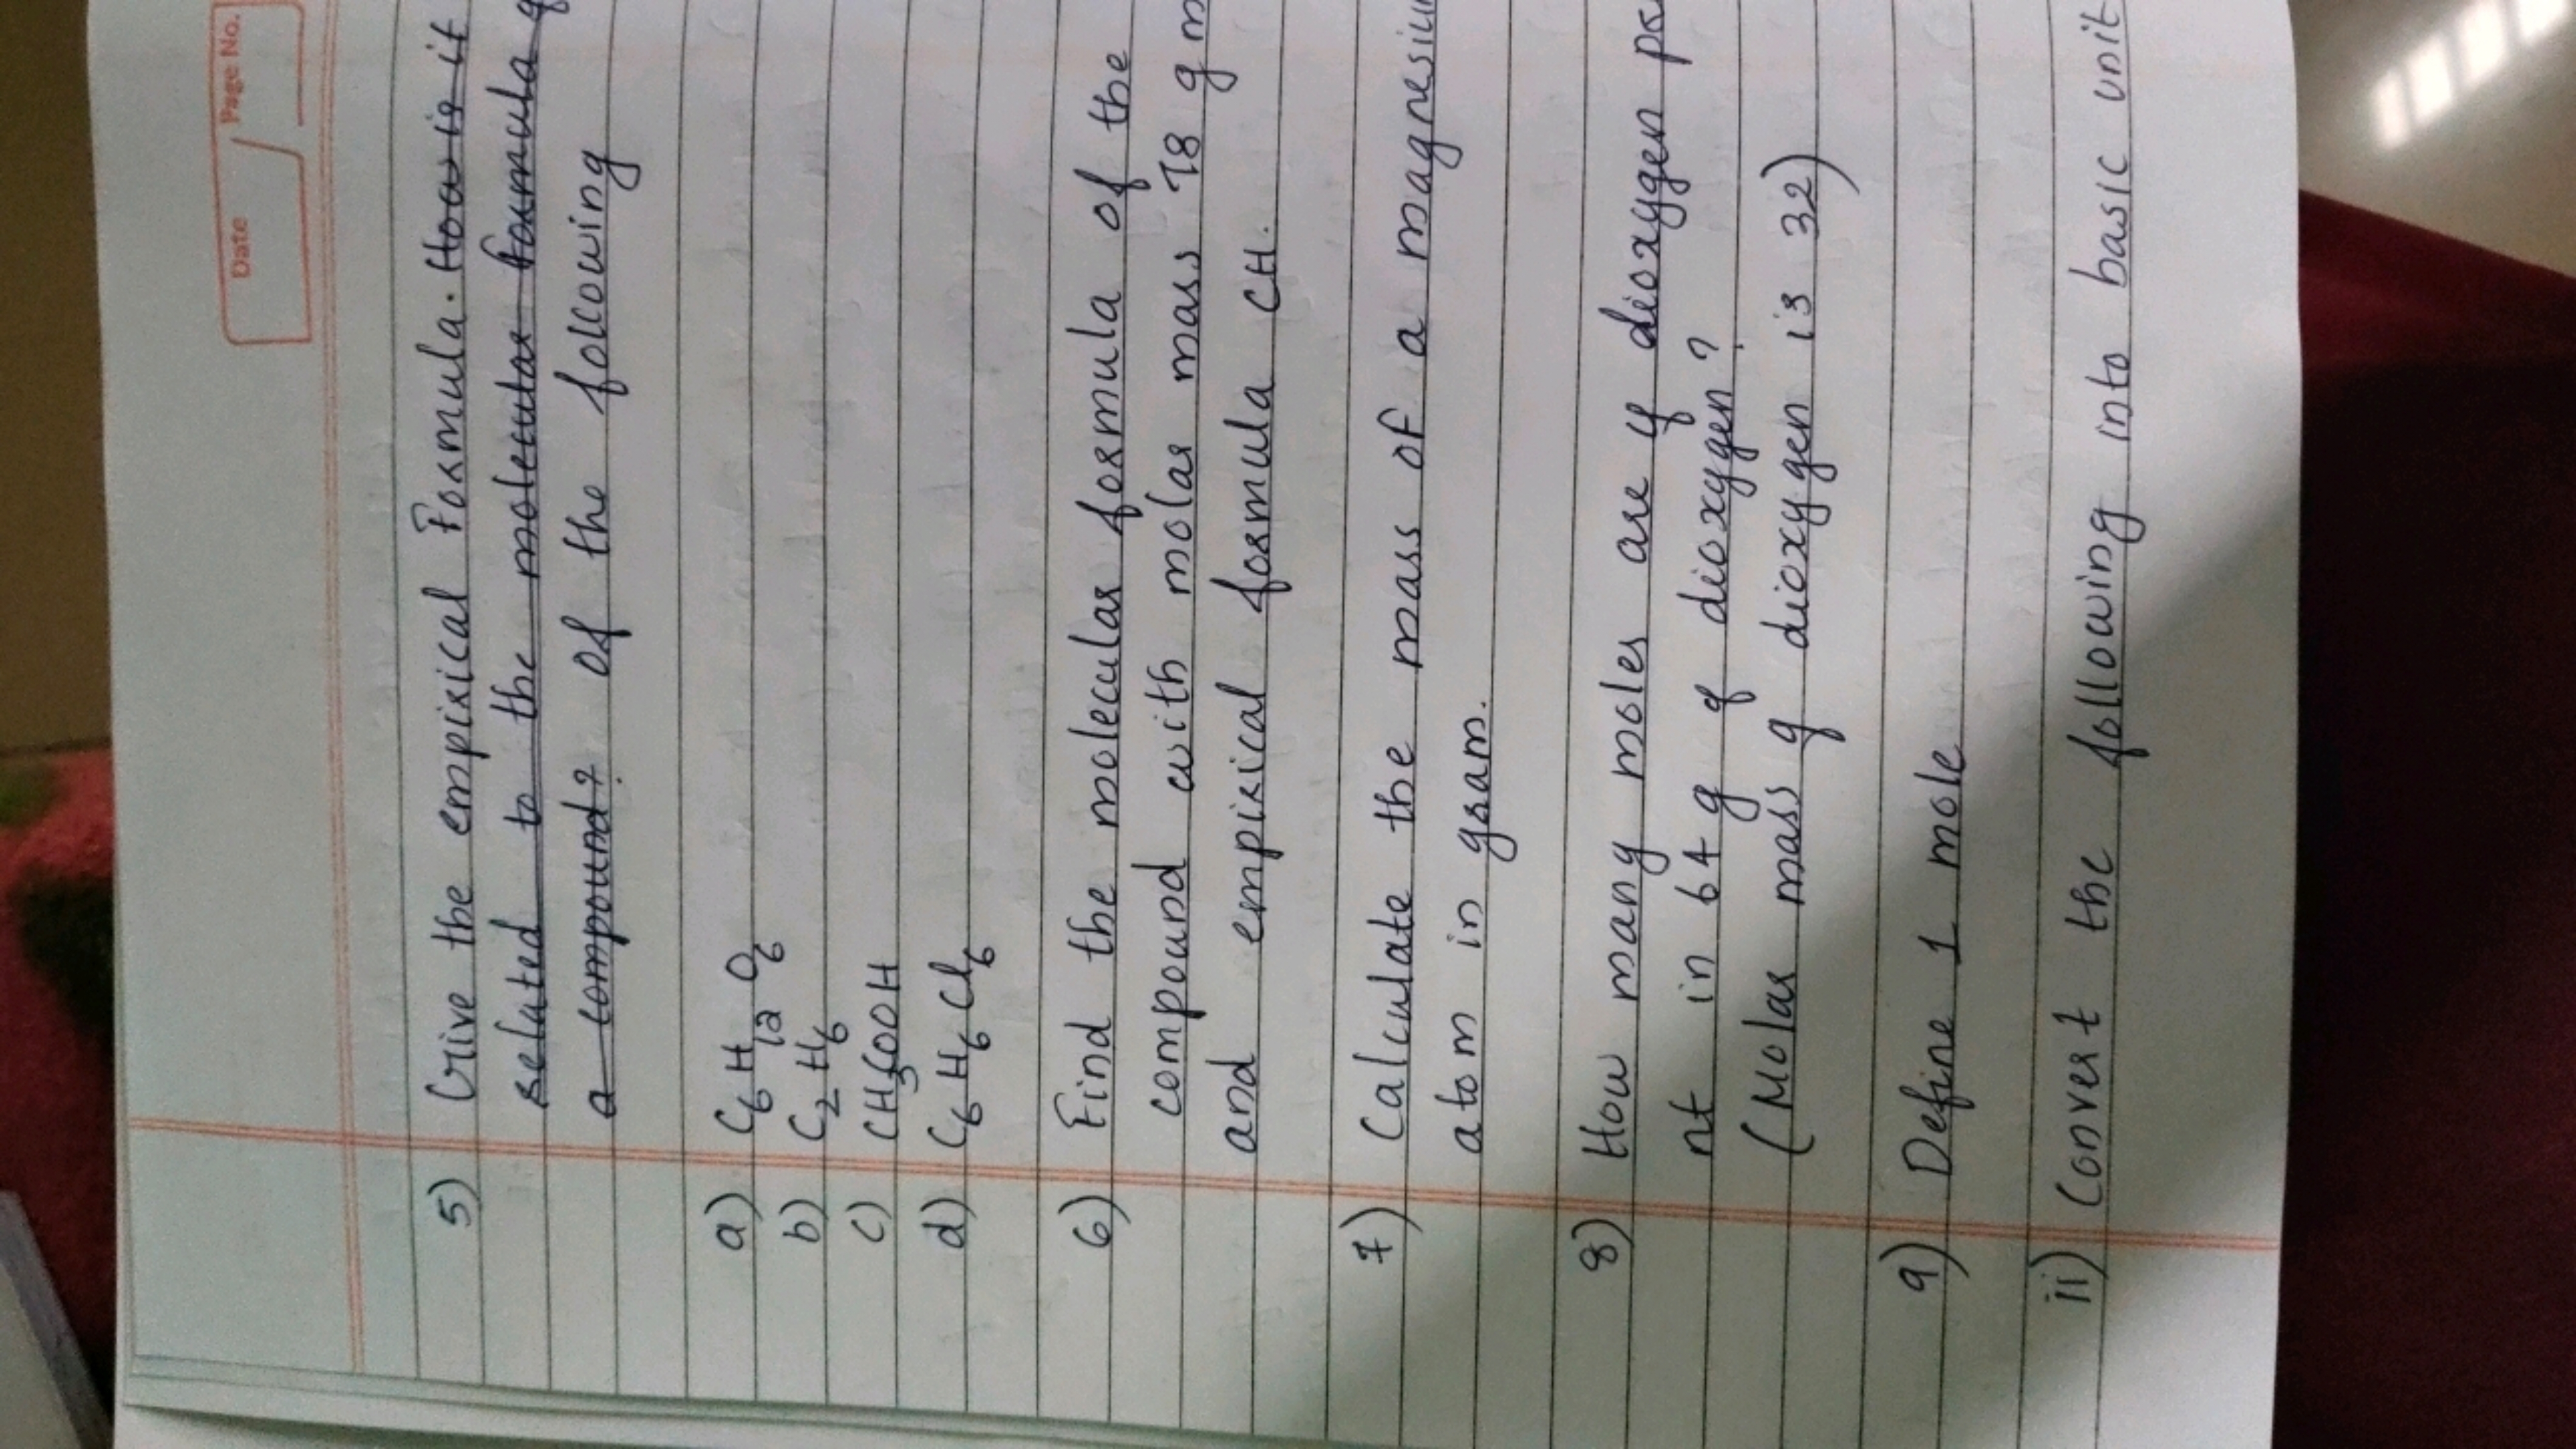 Date Page No.
5) Give the empirical Formula. How is it
related to the molecular formula
a compound? Of the following
a) C₆H₁₂O₆
b) C₂H₆
c) CH₃COOH
d) C₆H₆Cl₆
6) Find the molecular formula of the
compound with molar mass 78 g m
and empirical formula CH.
7) Calculate the mass of a magnesiu
atom in gram.
8) How many moles are of dioxygen pr
nt in 64 g of dioxygen?
(Molar mass of dioxygen is 32)
9) Define 1 mole
ii) Convert the following into basic unit